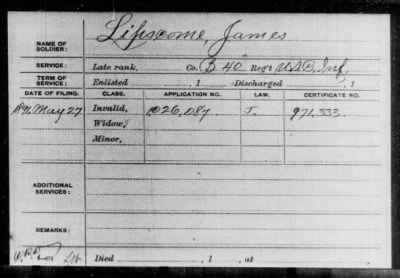 NAME OF SOLDIER: Lipscome, James
SERVICE: Late rank, Co. B 40 Reg't U.S.C. Inf.
TERM OF SERVICE: Enlisted , 1 Discharged , 1
DATE OF FILING. CLASS. APPLICATION NO. LAW. CERTIFICATE NO.
1891 May 27 Invalid, 1026,087 J. 971,333
Widow,
Minor,
ADDITIONAL SERVICES:
REMARKS:
Died , 1 , at